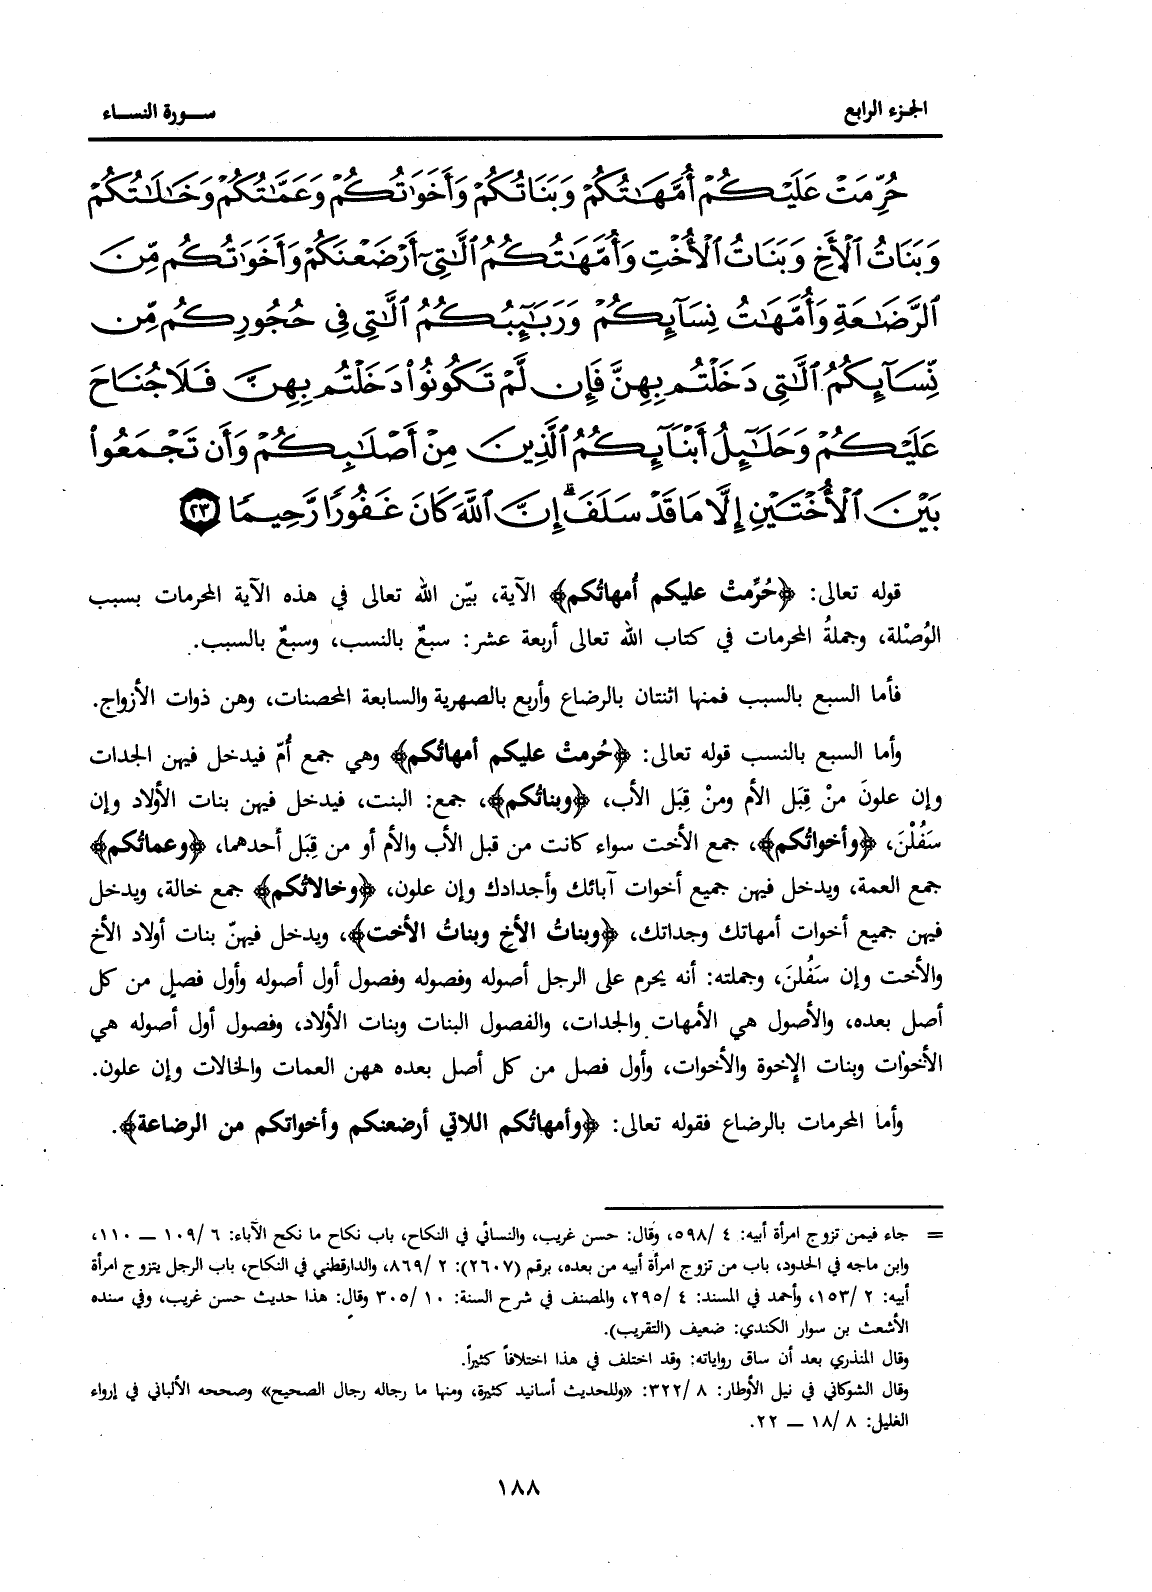 الجزء الرابع
سورة النساء
حُرِّمَتْ عَلَيْكُمْ أُمَّهَٰتُكُمْ وَبَنَاتُكُمْ وَأَخَوَٰتُكُمْ وَعَمَّٰتُكُمْ وَخَٰلَٰتُكُمْ
وَبَنَاتُ ٱلْأَخِ وَبَنَاتُ ٱلْأُخْتِ وَأُمَّهَٰتُكُمُ ٱلَّٰتِىٓ أَرْضَعْنَكُمْ وَأَخَوَٰتُكُم مِّنَ
ٱلرَّضَٰعَةِ وَأُمَّهَٰتُ نِسَآئِكُمْ وَرَبَٰٓئِبُكُمُ ٱلَّٰتِى فِى حُجُورِكُم مِّن
نِّسَآئِكُمُ ٱلَّٰتِى دَخَلْتُم بِهِنَّ فَإِن لَّمْ تَكُونُوا۟ دَخَلْتُم بِهِنَّ فَلَا جُنَاحَ
عَلَيْكُمْ وَحَلَٰٓئِلُ أَبْنَآئِكُمُ ٱلَّذِينَ مِنْ أَصْلَٰبِكُمْ وَأَن تَجْمَعُوا۟
بَيْنَ ٱلْأُخْتَيْنِ إِلَّا مَا قَدْ سَلَفَ ۗ إِنَّ ٱللَّهَ كَانَ غَفُورًا رَّحِيمًا ﴿٢٣﴾
قوله تعالى: ﴿حُرِّمتْ عليكم أُمهاتُكم﴾ الآية، بيّن الله تعالى في هذه الآية المحرمات بسبب
الوُصْلة، وجملةُ المحرمات في كتاب الله تعالى أربعة عشر: سبعٌ بالنسب، وسبعٌ بالسبب.
فأما السبع بالسبب فمنها اثنتان بالرضاع وأربع بالصهرية والسابعة المحصنات، وهن ذوات الأزواج.
وأما السبع بالنسب قوله تعالى: ﴿حُرمتْ عليكم أمهاتُكم﴾ وهي جمع أُمّ فيدخل فيهن الجدات
وإن علونَ منْ قِبَل الأم ومنْ قِبَل الأب، ﴿وبناتُكم﴾، جمع: البنت، فيدخل فيهن بنات الأولاد وإن
سَفُلْنَ، ﴿وأخواتُكم﴾، جمع الأخت سواء كانت من قبل الأب والأم أو من قِبَل أحدهما، ﴿وعماتُكم﴾
جمع العمة، ويدخل فيهن جميع أخوات آبائك وأجدادك وإن علون، ﴿وخالاتُكم﴾ جمع خالة، ويدخل
فيهن جميع أخوات أمهاتك وجداتك، ﴿وبناتُ الأخ وبناتُ الأخت﴾، ويدخل فيهنّ بنات أولاد الأخ
والأخت وإن سَفُلنَ، وجملته: أنه يحرم على الرجل أصوله وفصوله وفصول أول أصوله وأول فصلٍ من كل
أصل بعده، والأصول هي الأمهات والجدات، والفصول البنات وبنات الأولاد، وفصول أول أصوله هي
الأخوات وبنات الإخوة والأخوات، وأول فصل من كل أصل بعده ههن العمات والخالات وإن علون.
وأما المحرمات بالرضاع فقوله تعالى: ﴿وأمهاتُكم اللاتي أرضعنكم وأخواتكم من الرضاعة﴾.
= جاء فيمن تزوج امرأة أبيه: ٤ /٥٩٨، وقال: حسن غريب، والنسائي في النكاح، باب نكاح ما نكح الآباء: ٦ /١٠٩ ــ ١١٠،
وابن ماجه في الحدود، باب من تزوج امرأة أبيه من بعده، برقم (٢٦٠٧): ٢ /٨٦٩، والدارقطني في النكاح، باب الرجل يتزوج امرأة
أبيه: ٢ /١٥٣، وأحمد في المسند: ٤ /٢٩٥، والمصنف في شرح السنة: ١٠ /٣٠٥ وقال: هذا حديث حسن غريب، وفي سنده
الأشعث بن سوار الكندي: ضعيف (التقريب).
وقال المنذري بعد أن ساق رواياته: وقد اختلف في هذا اختلافاً كثيراً.
وقال الشوكاني في نيل الأوطار: ٨ /٣٢٢: «وللحديث أسانيد كثيرة، ومنها ما رجاله رجال الصحيح» وصححه الألباني في إرواء
الغليل: ٨ /١٨ ــ ٢٢.
١٨٨